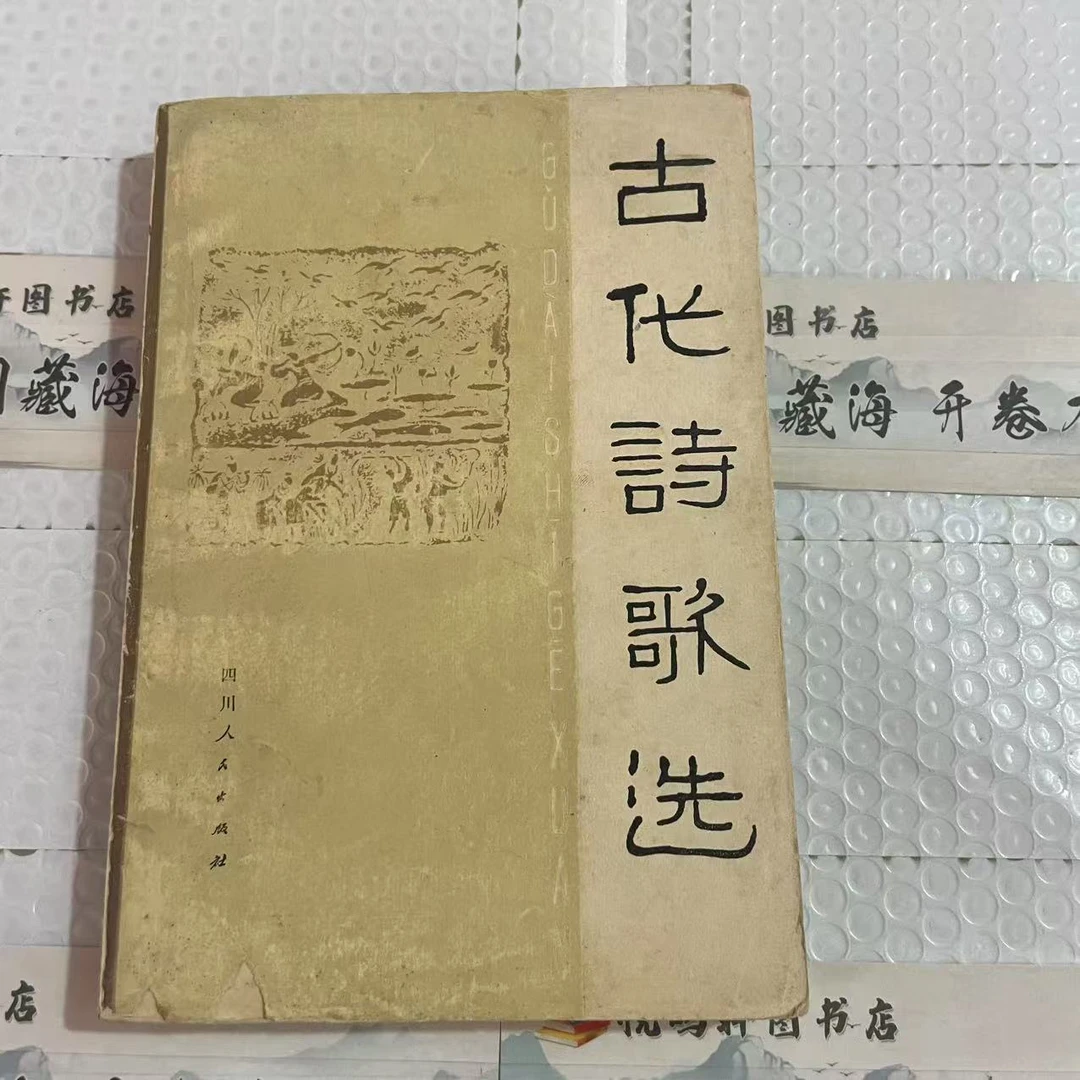 古代詩歌选
GǓDÀI SHĪGĒ XUǍN
四川人民出版社
图书店
藏海
图书店
藏海 开卷
店
图书店